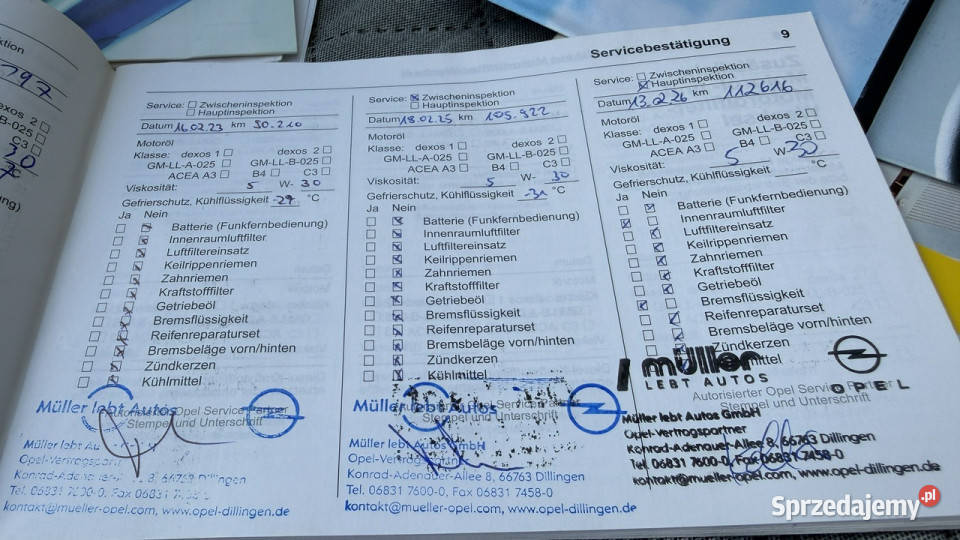 Servicebestätigung 9
ktion
797
dexos 2
B-025
C3
30
Service: Zwischeninspektion
Hauptinspektion
Datum 16.02.23 km 90.210
Motoröl
Klasse: dexos 1 dexos 2
GM-LL-A-025 GM-LL-B-025
ACEA A3 B4 C3
Viskosität: 5 W- 30
Gefrierschutz, Kühlflüssigkeit -29 °C
Ja Nein
Batterie (Funkfernbedienung)
Innenraumluftfilter
Luftfiltereinsatz
Keilrippenriemen
Zahnriemen
Kraftstofffilter
Getriebeöl
Bremsflüssigkeit
Reifenreparaturset
Bremsbeläge vorn/hinten
Zündkerzen
Kühlmittel
Müller lebt Autos
Autorisierter Opel Service Partner
Stempel und Unterschrift
Müller lebt
Opel-Vertragspart
Konrad-Adenauer-Allee 8, 66763 Dillingen
Tel. 06831 7600-0, Fax 06831 7458-0
kontakt@mueller-opel.com, www.opel-dillingen.de
Service: Zwischeninspektion
Hauptinspektion
Datum 18.02.25 km 105.922
Motoröl
Klasse: dexos 1 dexos 2
GM-LL-A-025 GM-LL-B-025
ACEA A3 B4 C3
Viskosität: 5 W- 30
Gefrierschutz, Kühlflüssigkeit -31 °C
Ja Nein
Batterie (Funkfernbedienung)
Innenraumluftfilter
Luftfiltereinsatz
Keilrippenriemen
Zahnriemen
Kraftstofffilter
Getriebeöl
Bremsflüssigkeit
Reifenreparaturset
Bremsbeläge vorn/hinten
Zündkerzen
Kühlmittel
Müller lebt Autos
Stempel und Unterschrift
Müller lebt Autos GmbH
Opel-Vertragspartner
Konrad-Adenauer-Allee 8, 66763 Dillingen
Tel. 06831 7600-0, Fax 06831 7458-0
kontakt@mueller-opel.com, www.opel-dillingen.de
Service: Zwischeninspektion
Hauptinspektion
Datum 13.02.26 km 112616
Motoröl
Klasse: dexos 1 dexos 2
GM-LL-A-025 GM-LL-B-025
ACEA A3 B4 C3
Viskosität: 5 W- 30
Gefrierschutz, Kühlflüssigkeit °C
Ja Nein
Batterie (Funkfernbedienung)
Innenraumluftfilter
Luftfiltereinsatz
Keilrippenriemen
Zahnriemen
Kraftstofffilter
Getriebeöl
Bremsflüssigkeit
Reifenreparaturset
Bremsbeläge vorn/hinten
Zündkerzen
müller
LEBT AUTOS OPEL
Autorisierter Opel Service Partner
Stempel und Unterschrift
Müller lebt Autos GmbH
Opel-Vertragspartner
Konrad-Adenauer-Allee 8, 66763 Dillingen
Tel. 06831 7600-0, Fax 06831 7458-0
kontakt@mueller-opel.com, www.opel-dillingen.de
Sprzedajemy.pl